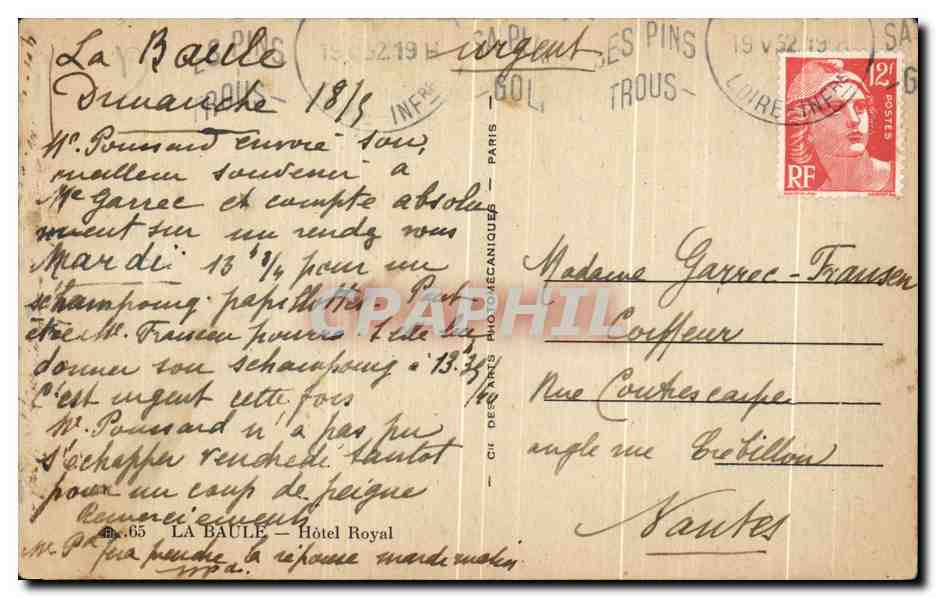 La Baule
urgent
Dimanche 18/5
Me. Poussard envoie son
meilleur souvenir à
Me Garrec et compte absolu
ment sur un rendez vous
Mardi 13h 3/4 pour un
schampoing papillottes. Peut
être M. Fransen pourra
donner son schampoing à 13.h
C'est urgent cette fois
Me. Poussard n'a pas pu
s'échapper vendredi
pour un coup de peigne
Remerciements
fera prendre la réponse mardi matin
65 LA BAULE — Hôtel Royal
Cie DES ARTS PHOTOMÉCANIQUES — PARIS
LES PINS
TROUS
19 V 52 19 H
LOIRE INFRE
GOL
LES PINS
TROUS
19 V 52 19
LOIRE INFRE
SA
G
12F
POSTES
RF
Madame Garrec-Fransen
Coiffeur
Rue Contrescarpe
angle rue Crébillon
Nantes
CPAPHIL